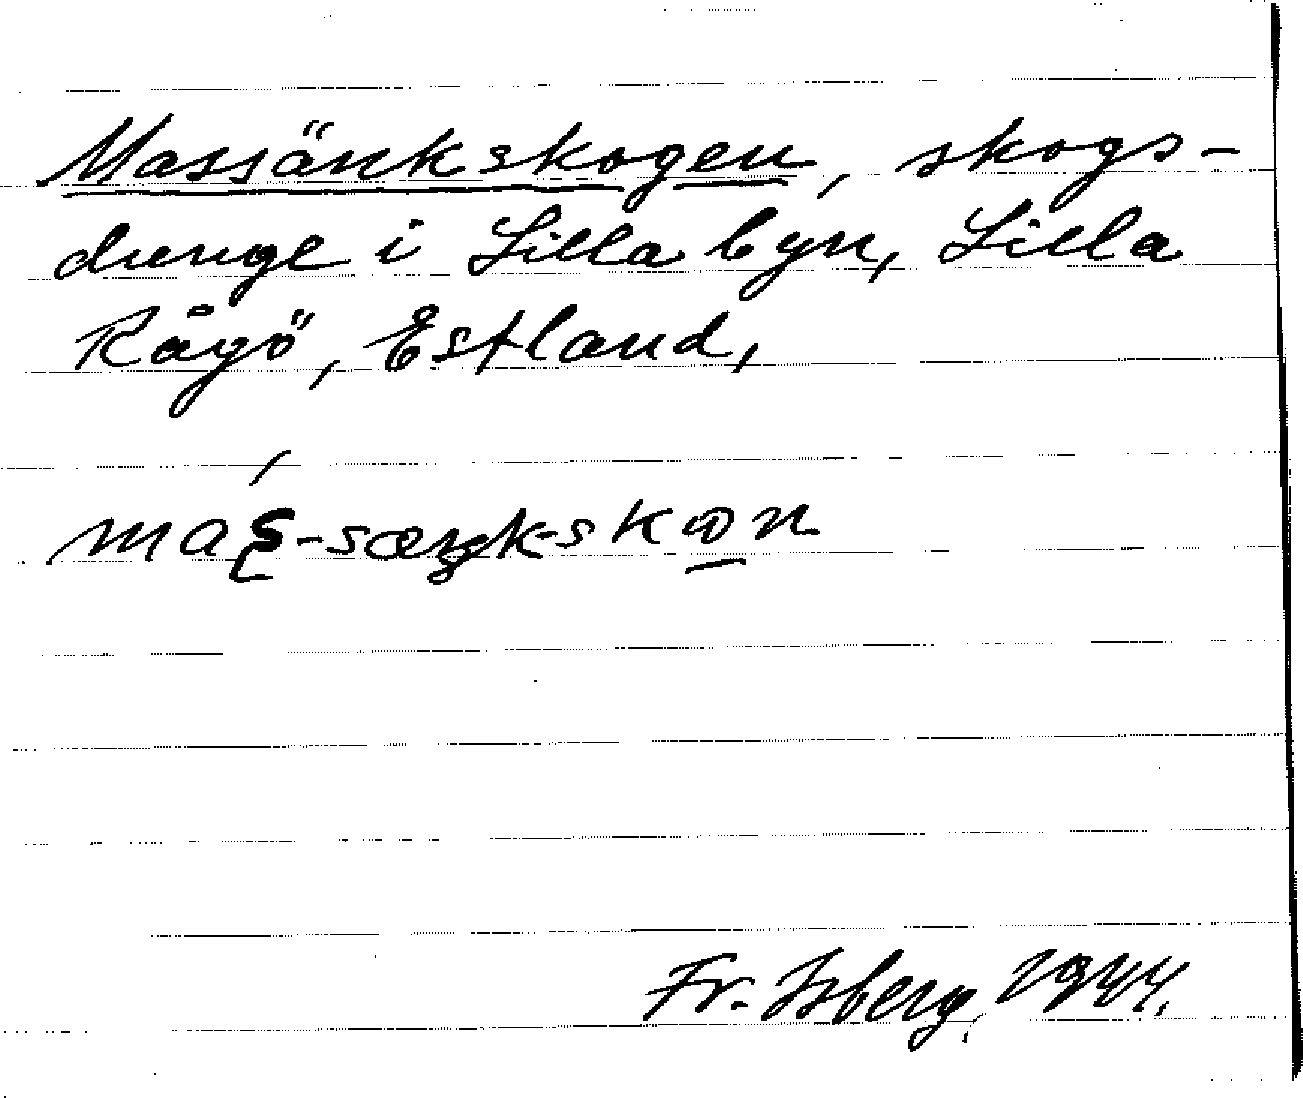 Massänkskogen, skogs-
dunge i Lilla byn, Lilla
Rågö, Estland,
Fr. Isberg, 1944.